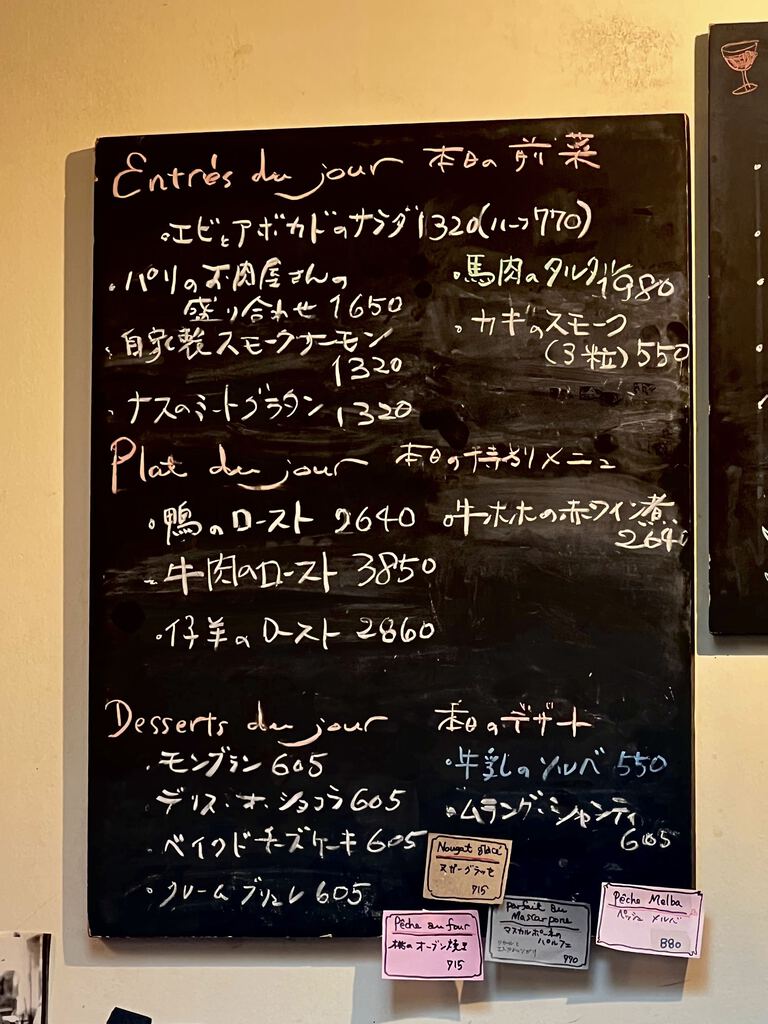 Entrés du jour 本日の前菜
・エビとアボカドのサラダ 1320(ハーフ770)
・パリのお肉屋さんの
盛り合わせ 1650
・自家製スモークサーモン
1320
・ナスのミートグラタン 1320
・馬肉のタルタル 1980
・カキのスモーク
(3粒) 550
Plat du jour 本日の特別メニュー
・鴨のロースト 2640
・牛ホホの赤ワイン煮
2640
・牛肉のロースト 3850
・仔羊のロースト 2860
Desserts du jour 本日のデザート
・モンブラン 605
・デリス・オ・ショコラ 605
・ベイクドチーズケーキ 605
・クレームブリュレ 605
・牛乳のソルベ 550
・ムラング・シャンティ
605
Nougat glacé
ヌガーグラッセ
715
Pêche au four
桃のオーブン焼き
715
Parfait au
Mascarpone
マスカルポーネの
パルフェ
770
Pêche Melba
ペッシュ メルバ
880